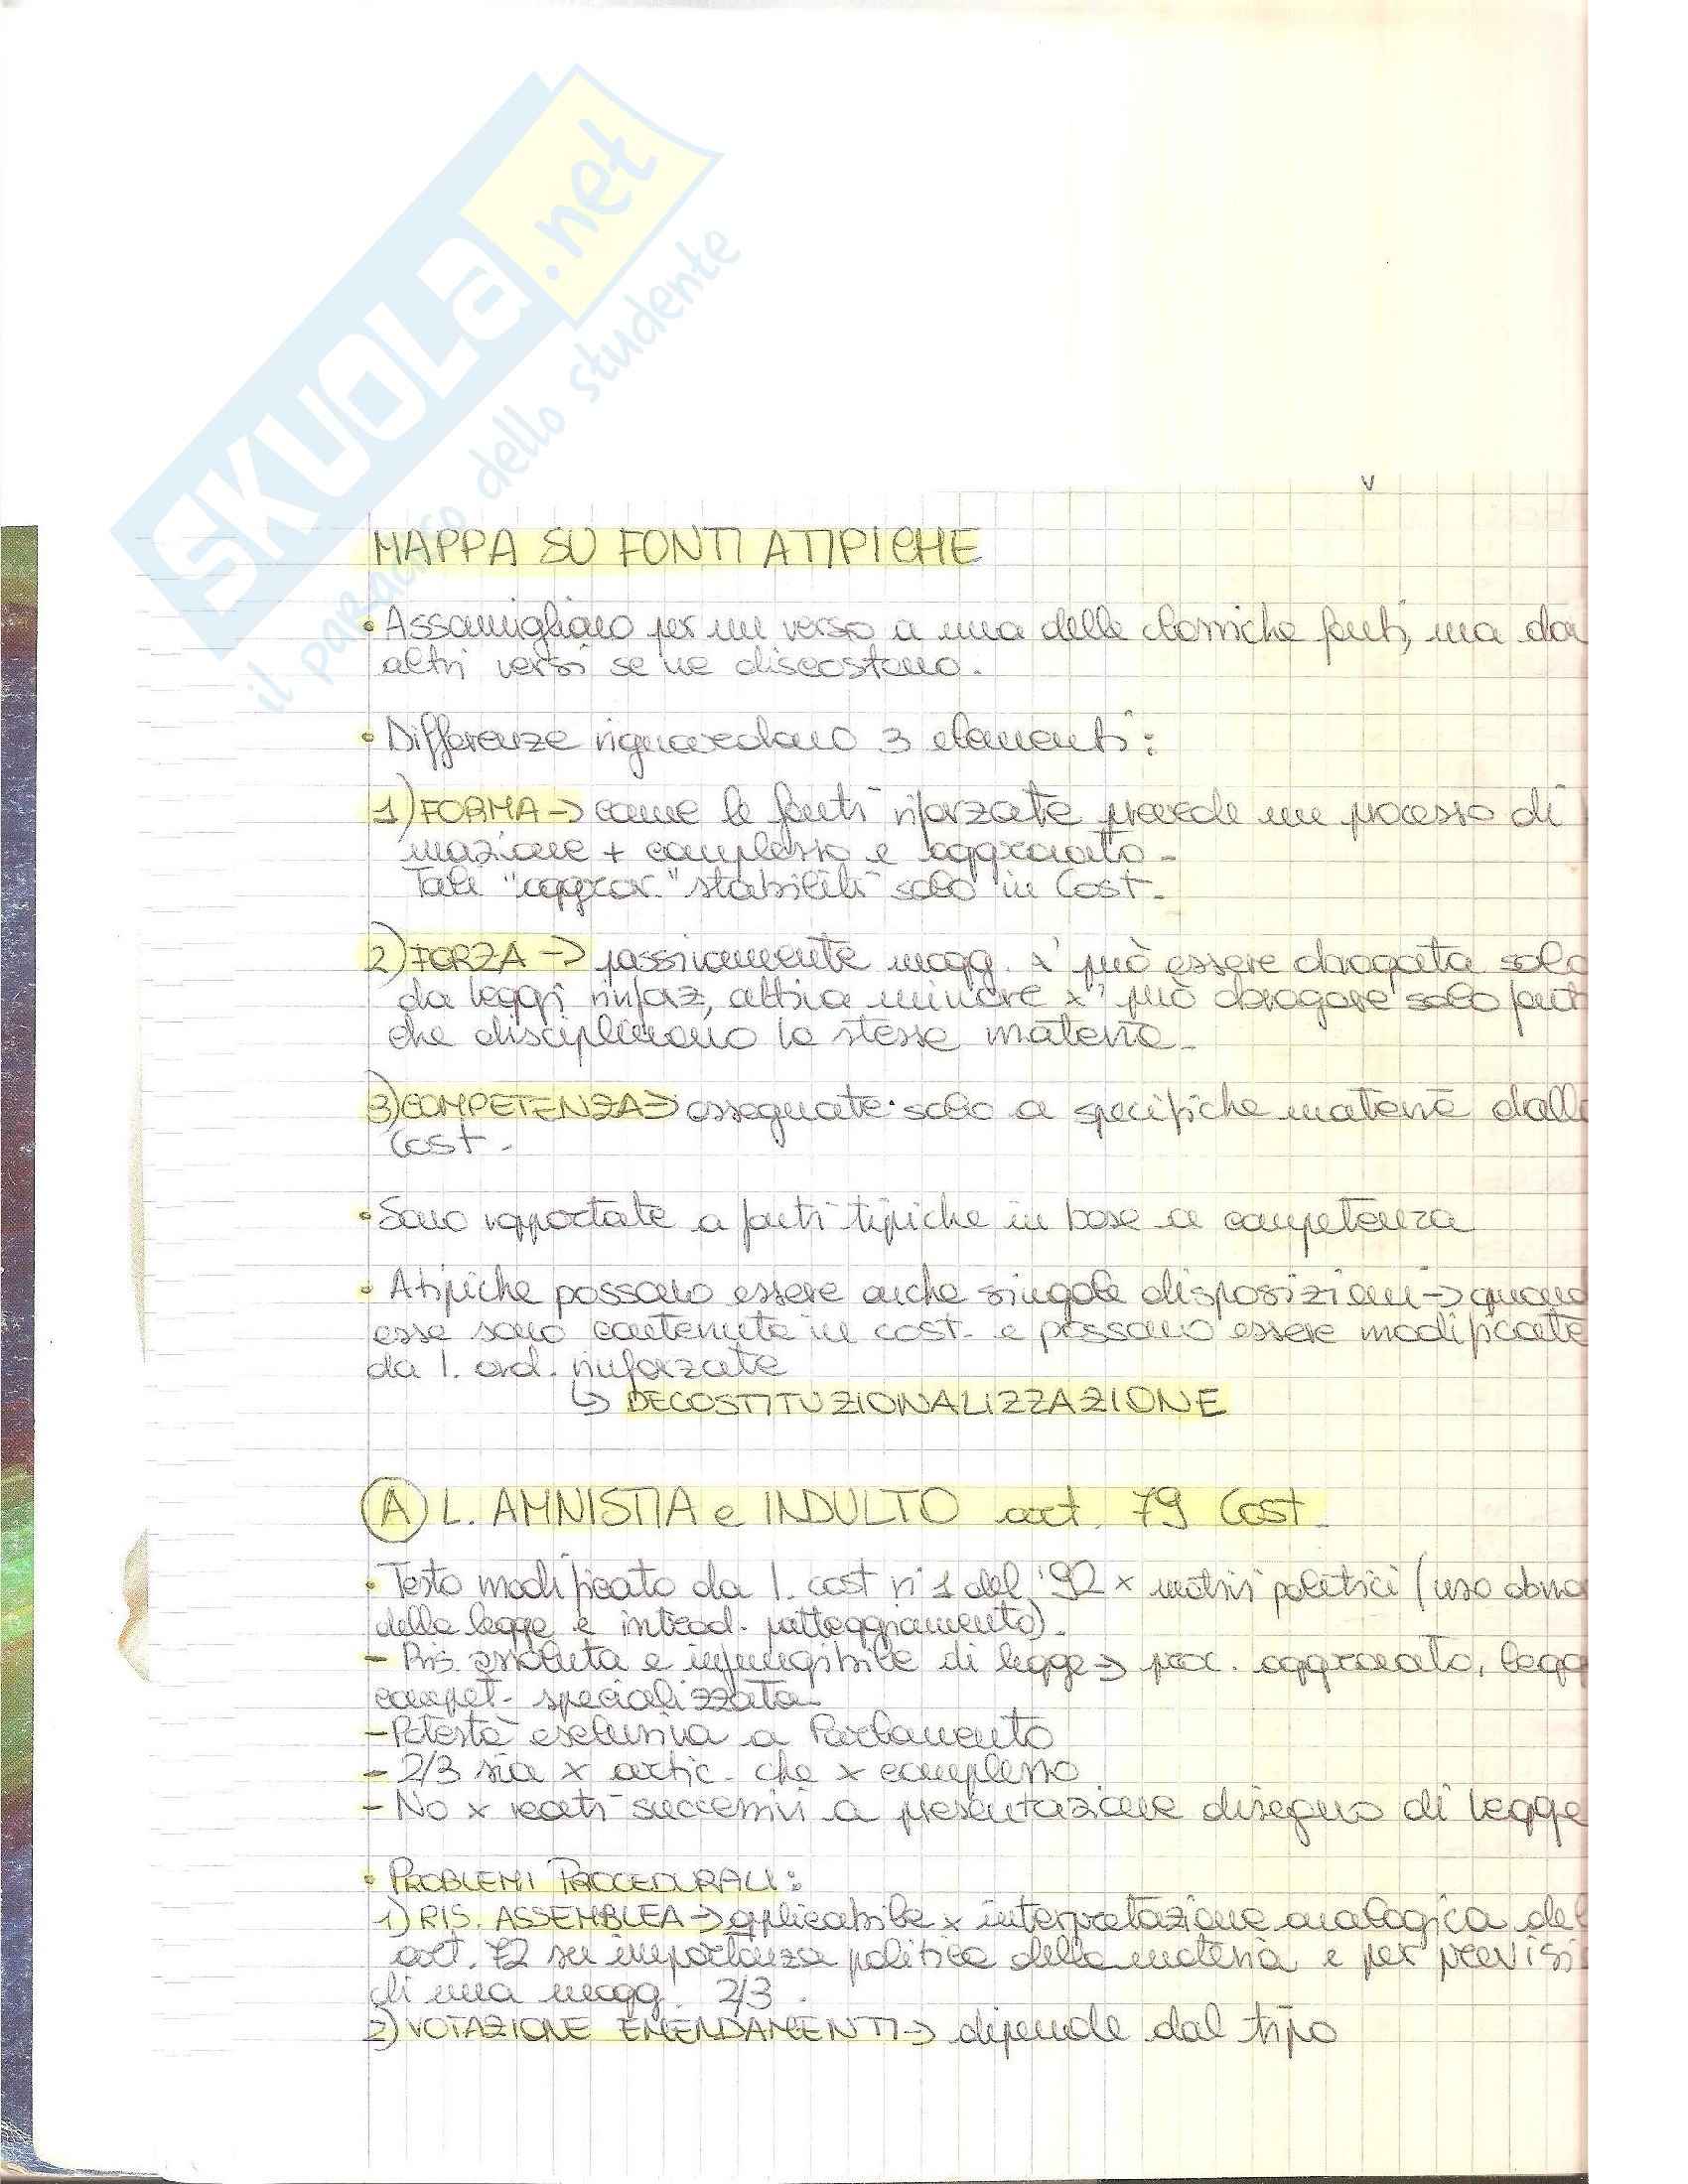 SKUOLa.net
il paradiso dello studente
v
MAPPA SU FONTI ATIPICHE
• Assomigliano per un verso a una delle classiche fonti, ma da
altri versi se ne discostano.
• Differenze riguardano 3 elementi:
1) FORMA → come le fonti riforzate prevede un processo di
mazione + complesso e aggravato -
Tali "aggrav." stabiliti solo in Cost -
2) FORZA → passivamente magg. x' può essere abrogata solo
da leggi rinforz, attiva minore x' può abrogare solo font
che disciplinano la stessa materia -
3) COMPETENZA → assegnate solo a specifiche materie dalla
Cost -
• Sono rapportate a fonti tipiche in base a competenza
• Atipiche possono essere anche singole disposizioni → quand
esse sono contenute in cost. e possono essere modificate
da l. ord. rinforzate
↳ DECOSTITUZIONALIZZAZIONE
A) L. AMNISTIA e INDULTO art. 79 Cost.
• Testo modificato da l. cost n°1 del '92 x motivi politici (uso abno
della legge e introd. patteggiamento).
- Ris. assoluta e infungibile di legge → proc. aggravato, legg
compet. specializzata -
- Potestà esclusiva a Parlamento
- 2/3 sia x artic. che x complesso
- No x reati successivi a presentazione disegno di legge
• PROBLEMI PROCEDURALI:
1) RIS. ASSEMBLEA → applicabile x interpretazione analogica del
art. 72 su importanza politica della materia e per previsi
di una magg. 2/3.
2) VOTAZIONE EMENDAMENTI → dipende dal tipo